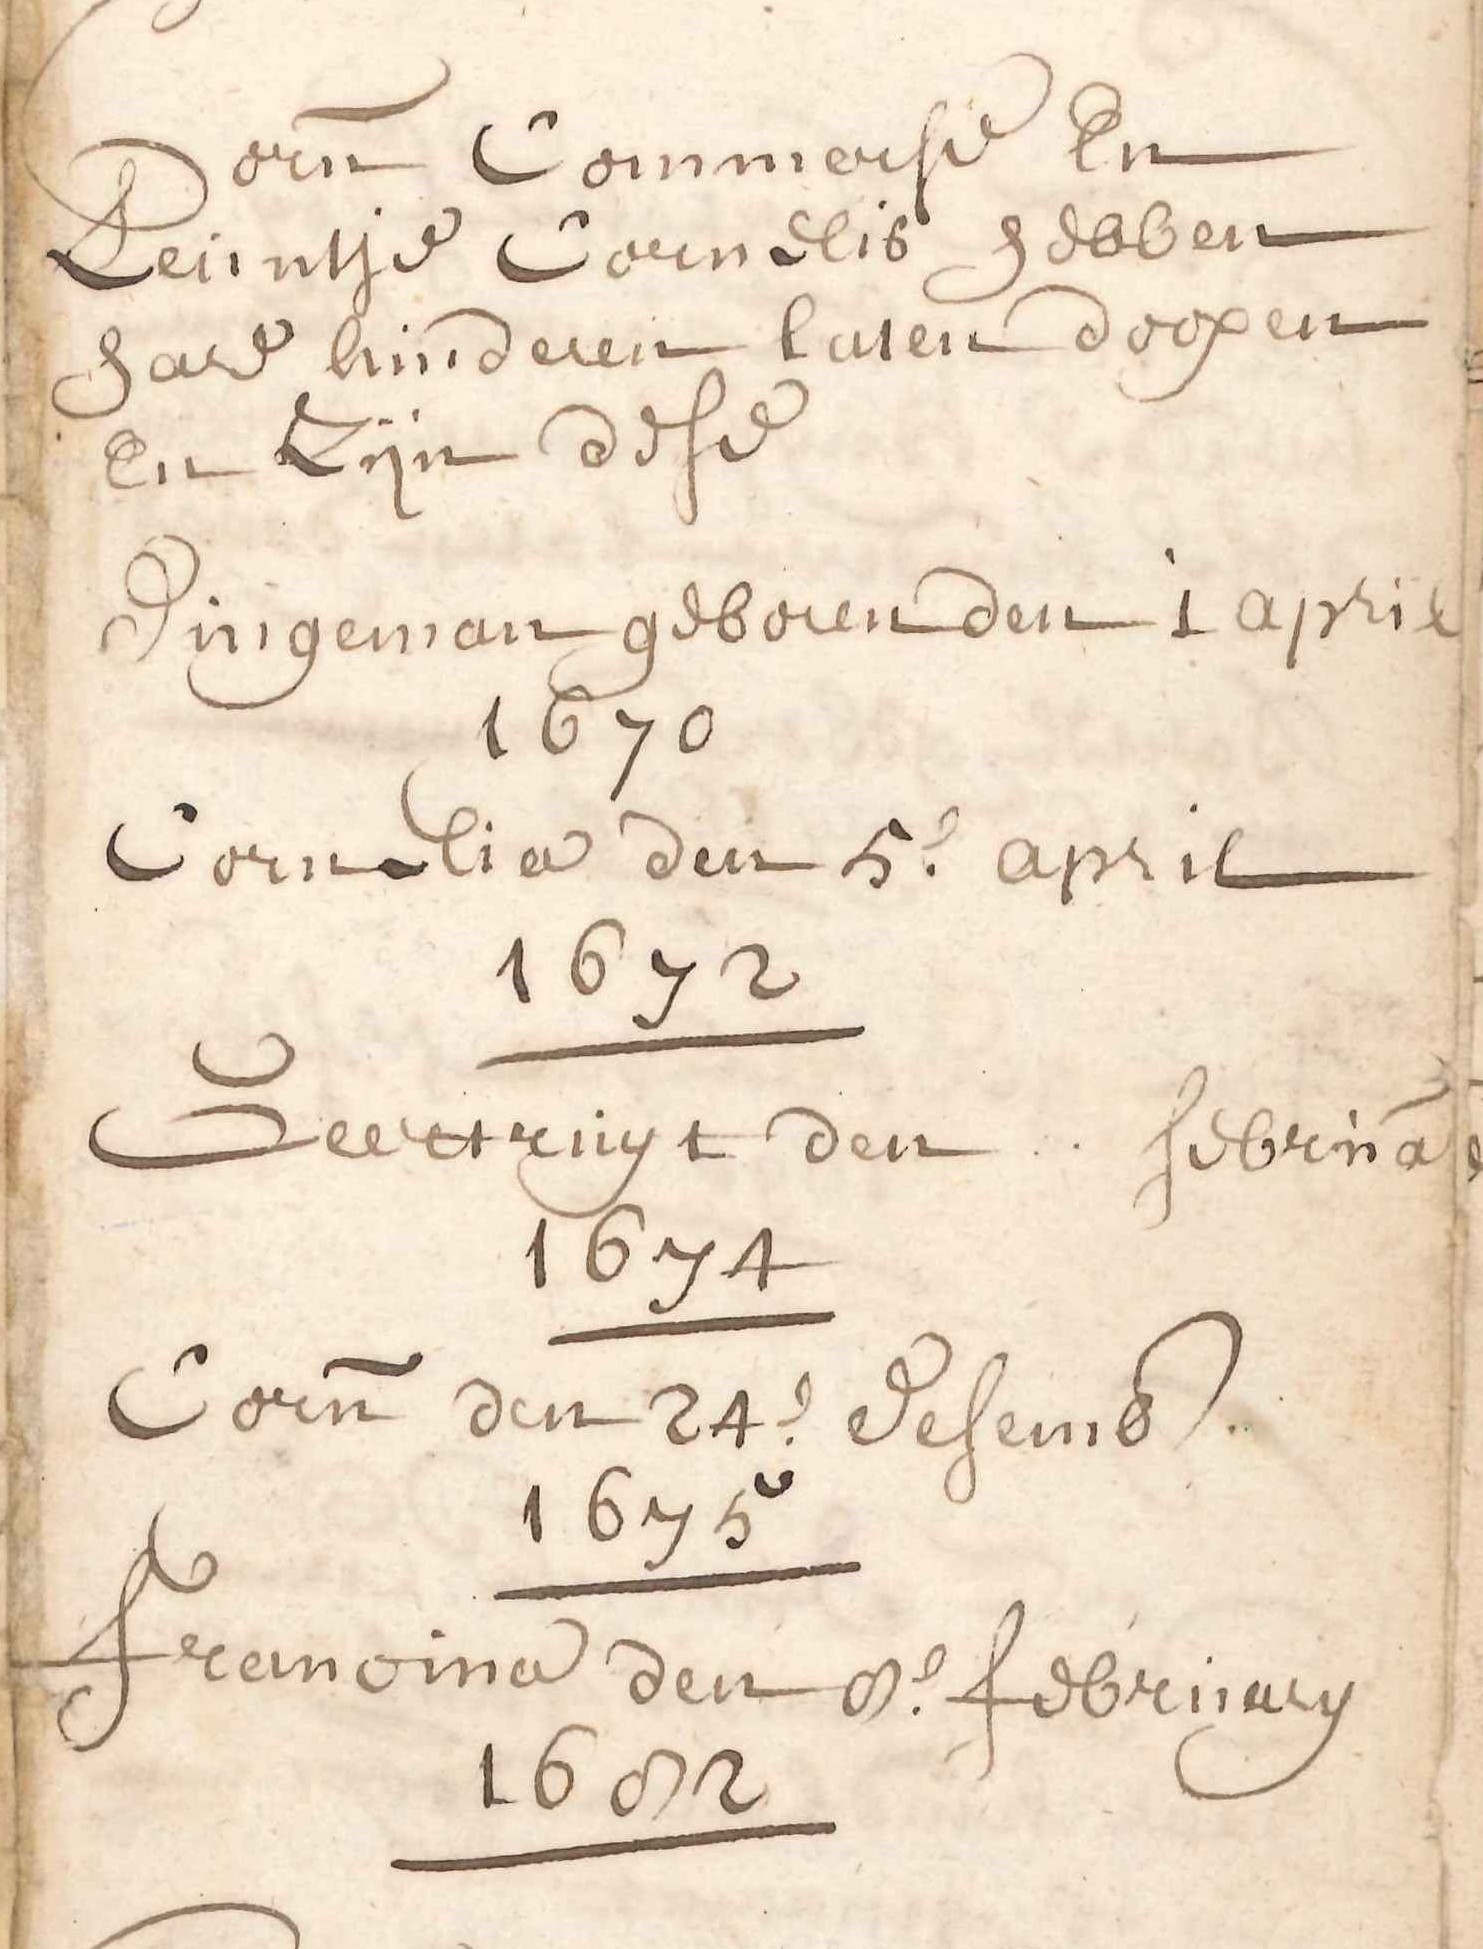 Corn Commersе En
Leuntje Cornelis hebben
hare kinderen laten doopen
En Zijn dese
Dingeman geboren den 1 april
1670
Cornelia den 5e april
1672
Geertruyt den .. februa
1674
Corn den 24e Desemb.
1675
francina den 8e february
1682